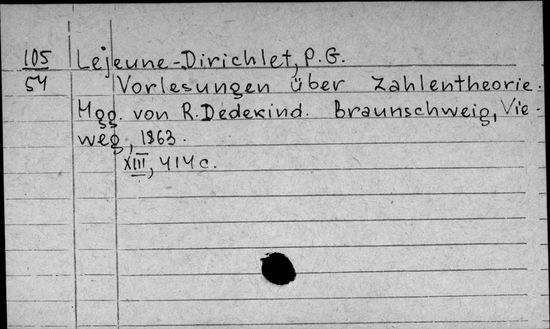 105 Lejeune-Dirichlet, P.G.
54 Vorlesungen über Zahlentheorie.
Hgg. von R.Dedekind. Braunschweig, Vie-
weg, 1863.
XIII, 414 c.